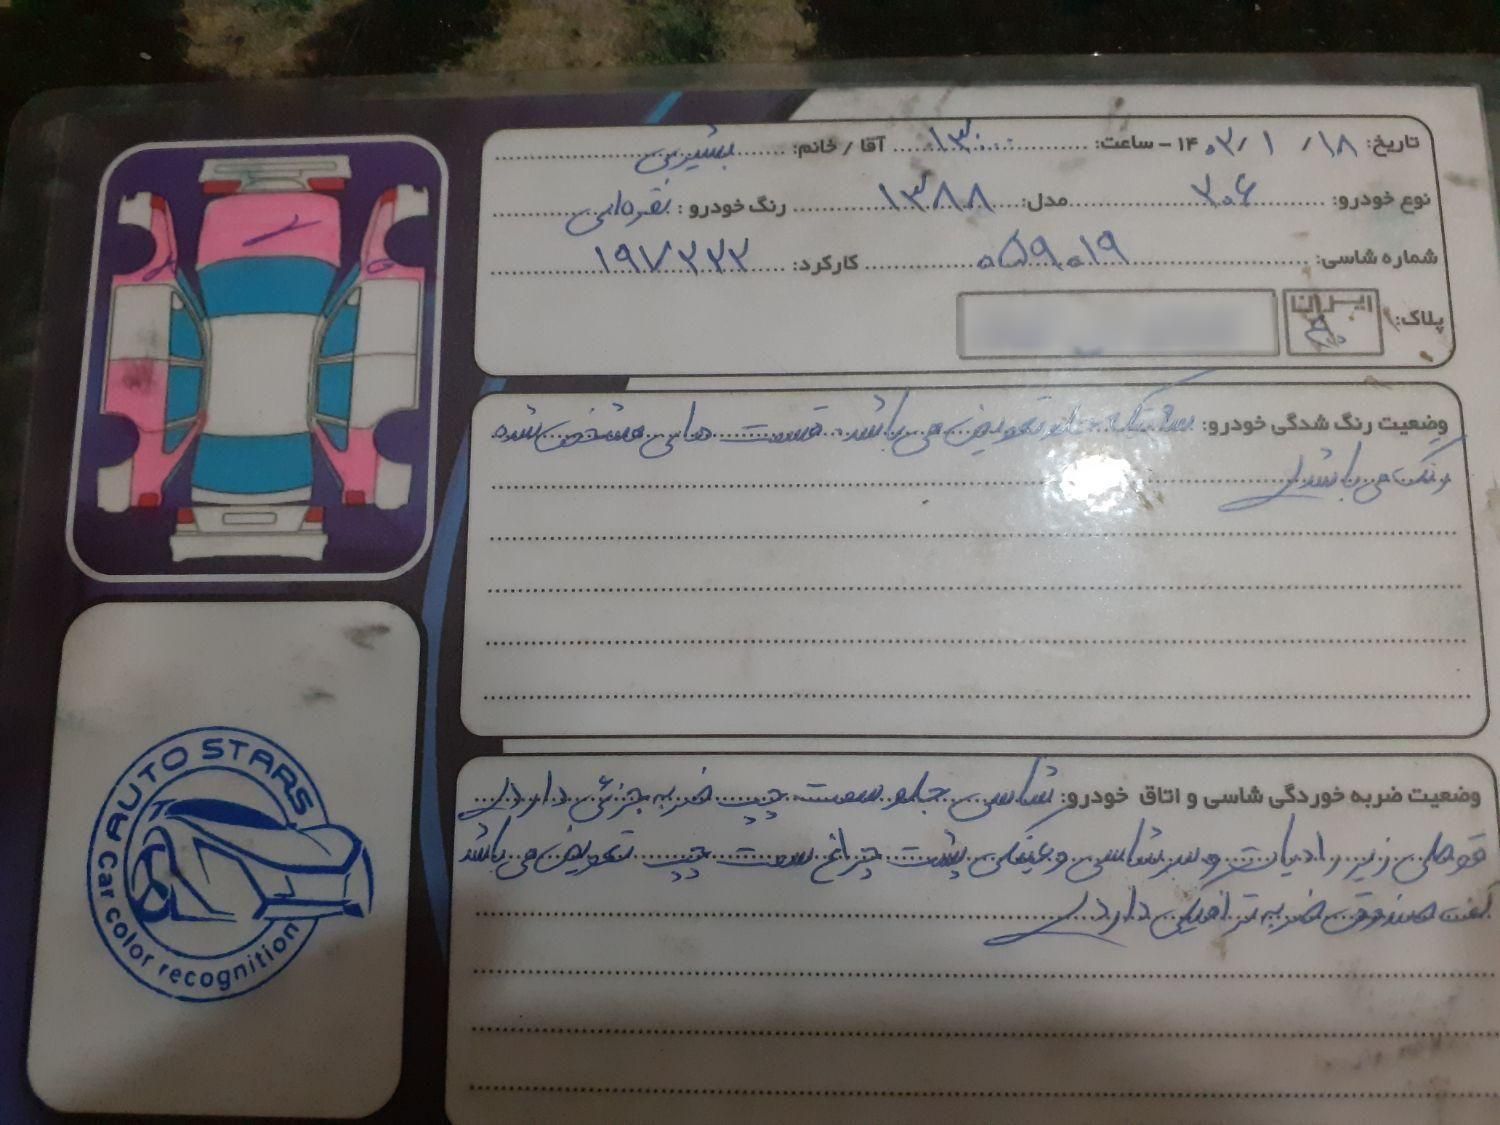 تاریخ: ۱۸ / ۱ / ۱۴۰۳ - ساعت: ۱۳:۰۰ آقا / خانم: بشیری
نوع خودرو: ۲۰۶ مدل: ۱۳۸۸ رنگ خودرو: نقره‌ای
شماره شاسی: ۰۵۹۰۱۹ کارکرد: ۱۹۷۲۲۲
پلاک: ایران
وضعیت رنگ شدگی خودرو: جلو تعویض می باشد. قسمت های مشخص شده
رنگ می باشد
وضعیت ضربه خوردگی شاسی و اتاق خودرو: شاسی جلو سمت چپ ضربه جزئی دارد
قوطی زیر رادیات و سرشاسی و عینکی پشت چراغ سمت چپ تعویض می باشد
کف صندوق ضربه ترافیکی دارد
AUTO STARS
Car color recognition